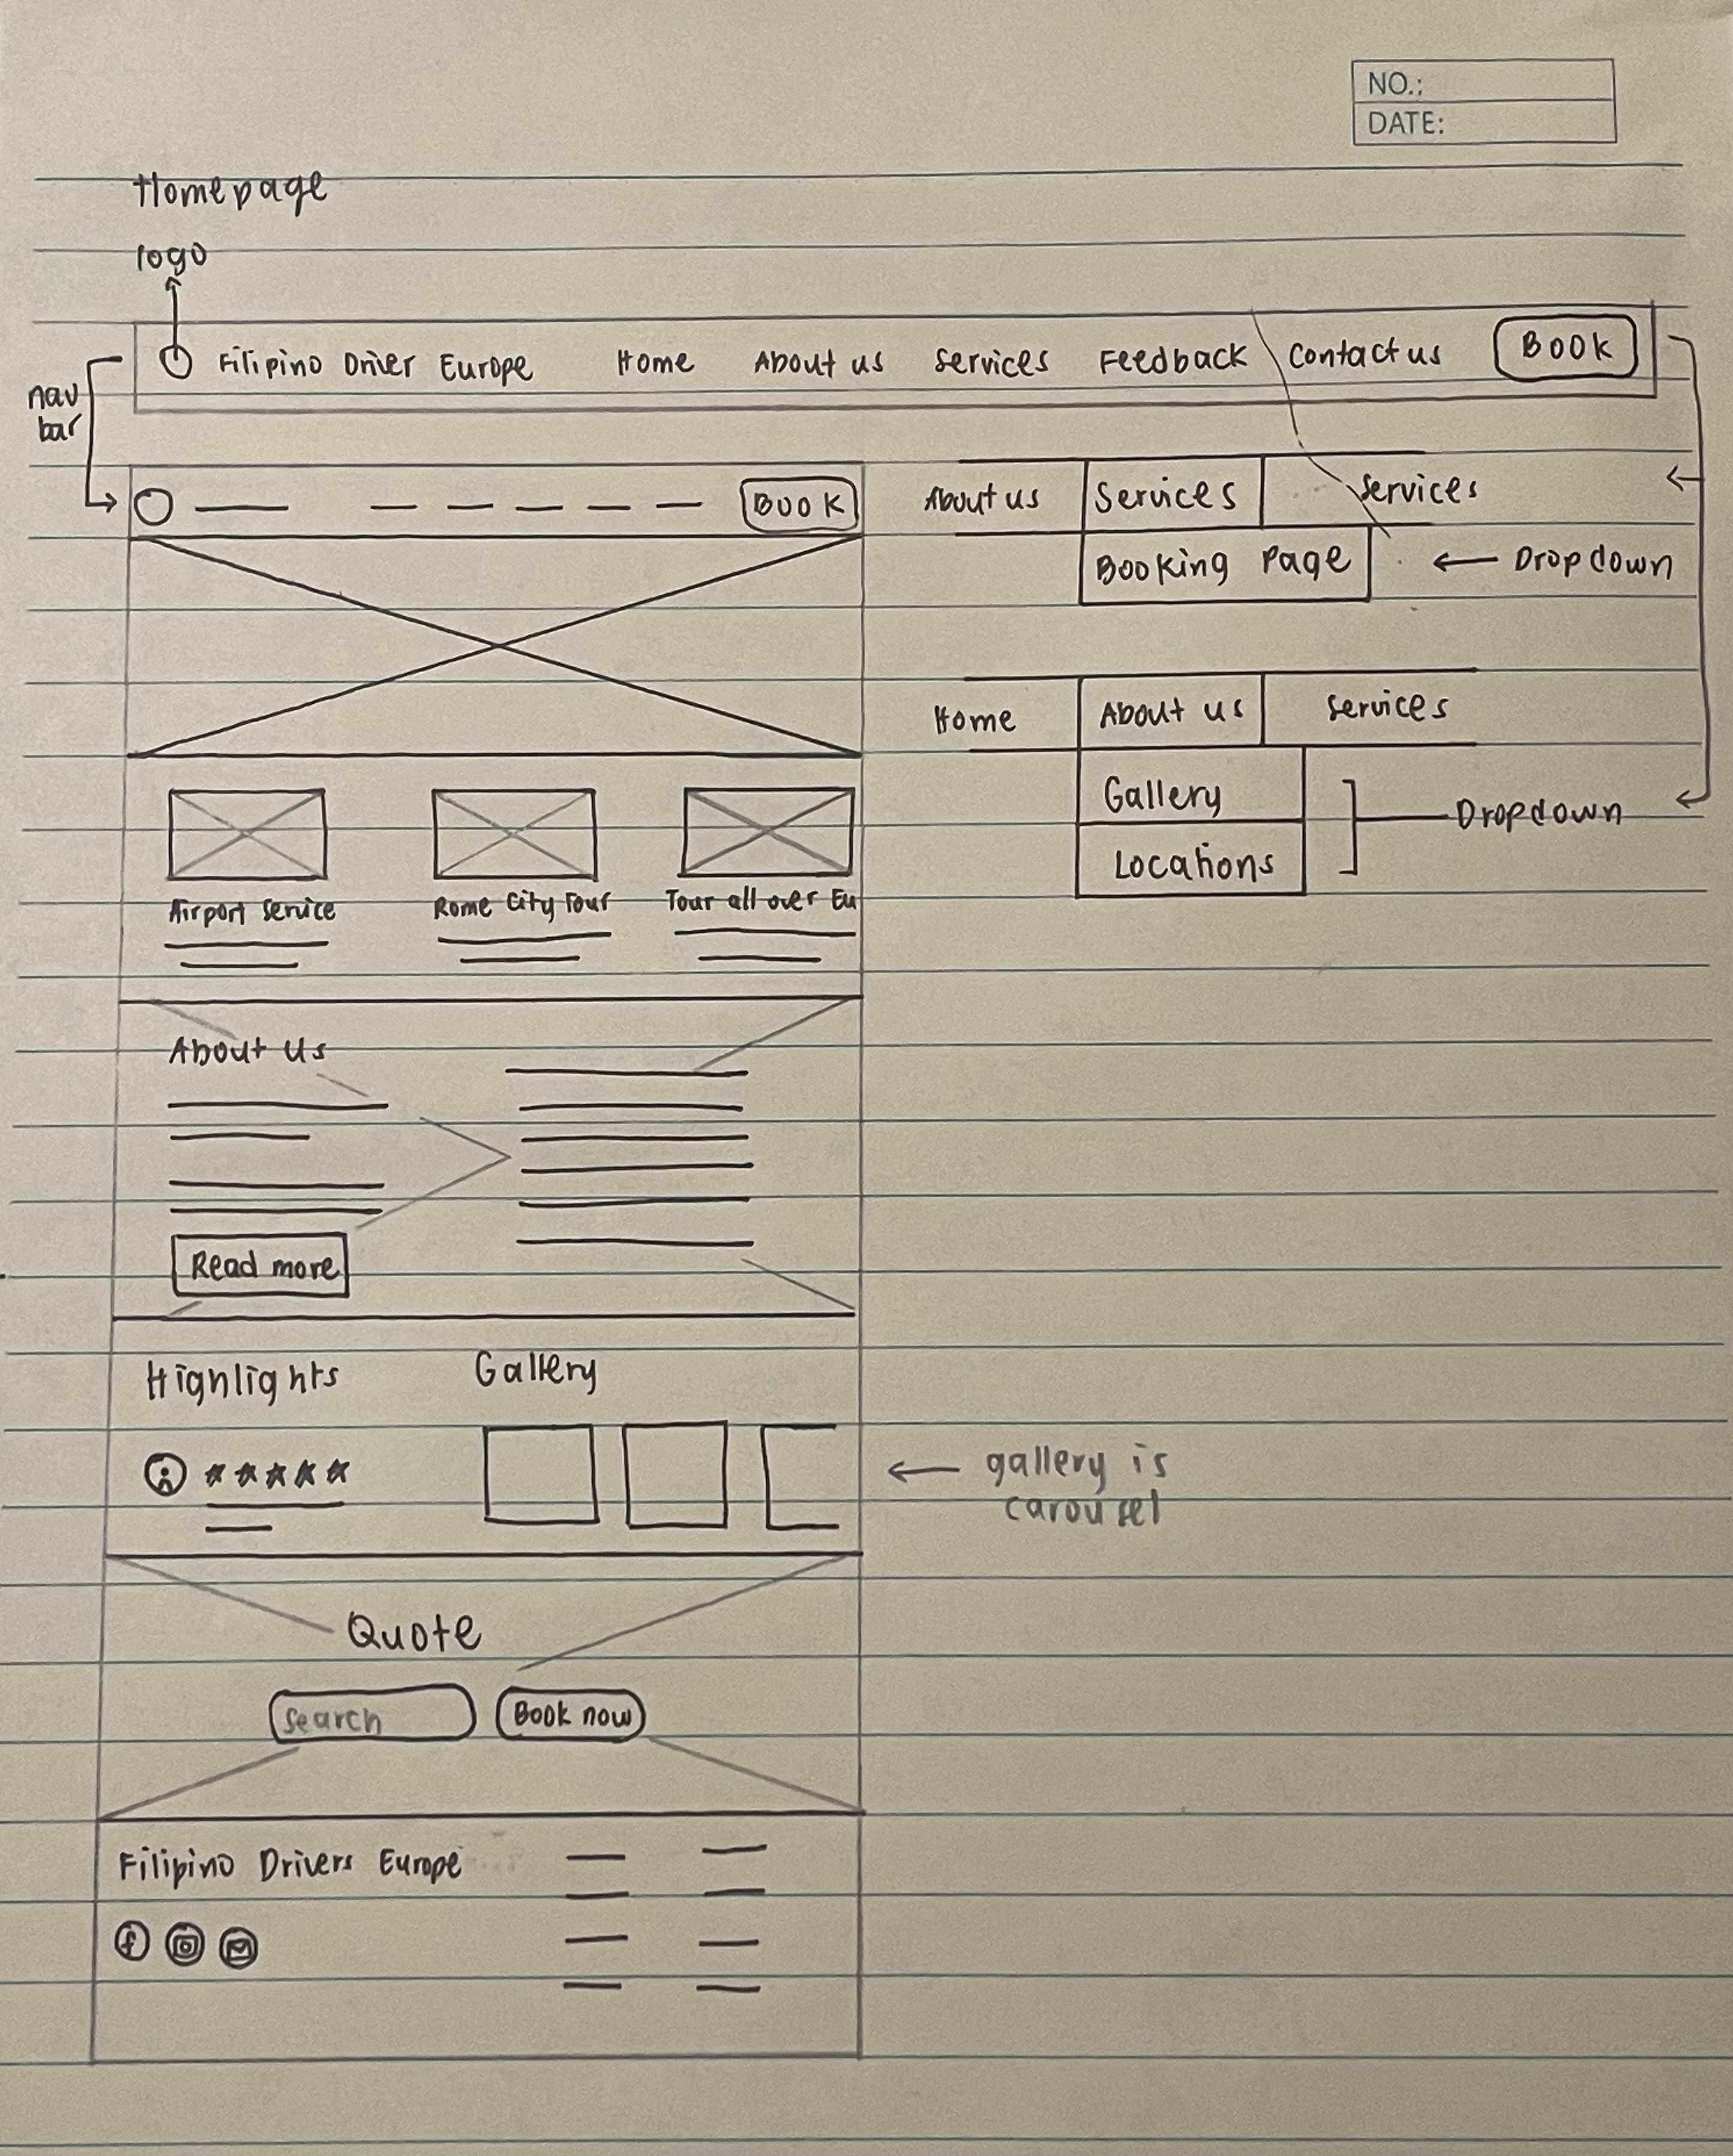 NO.:
DATE:
Homepage
logo
Filipino Driver Europe Home About us Services Feedback Contact us Book
nav
bar
Book
About us Services Services
Booking Page Dropdown
Home About us Services
Gallery
Dropdown
Locations
Airport Service Rome City Tour Tour all over Eu
About Us
Read more
Highlights Gallery
gallery is
carousel
Quote
Search Book now
Filipino Drivers Europe
f